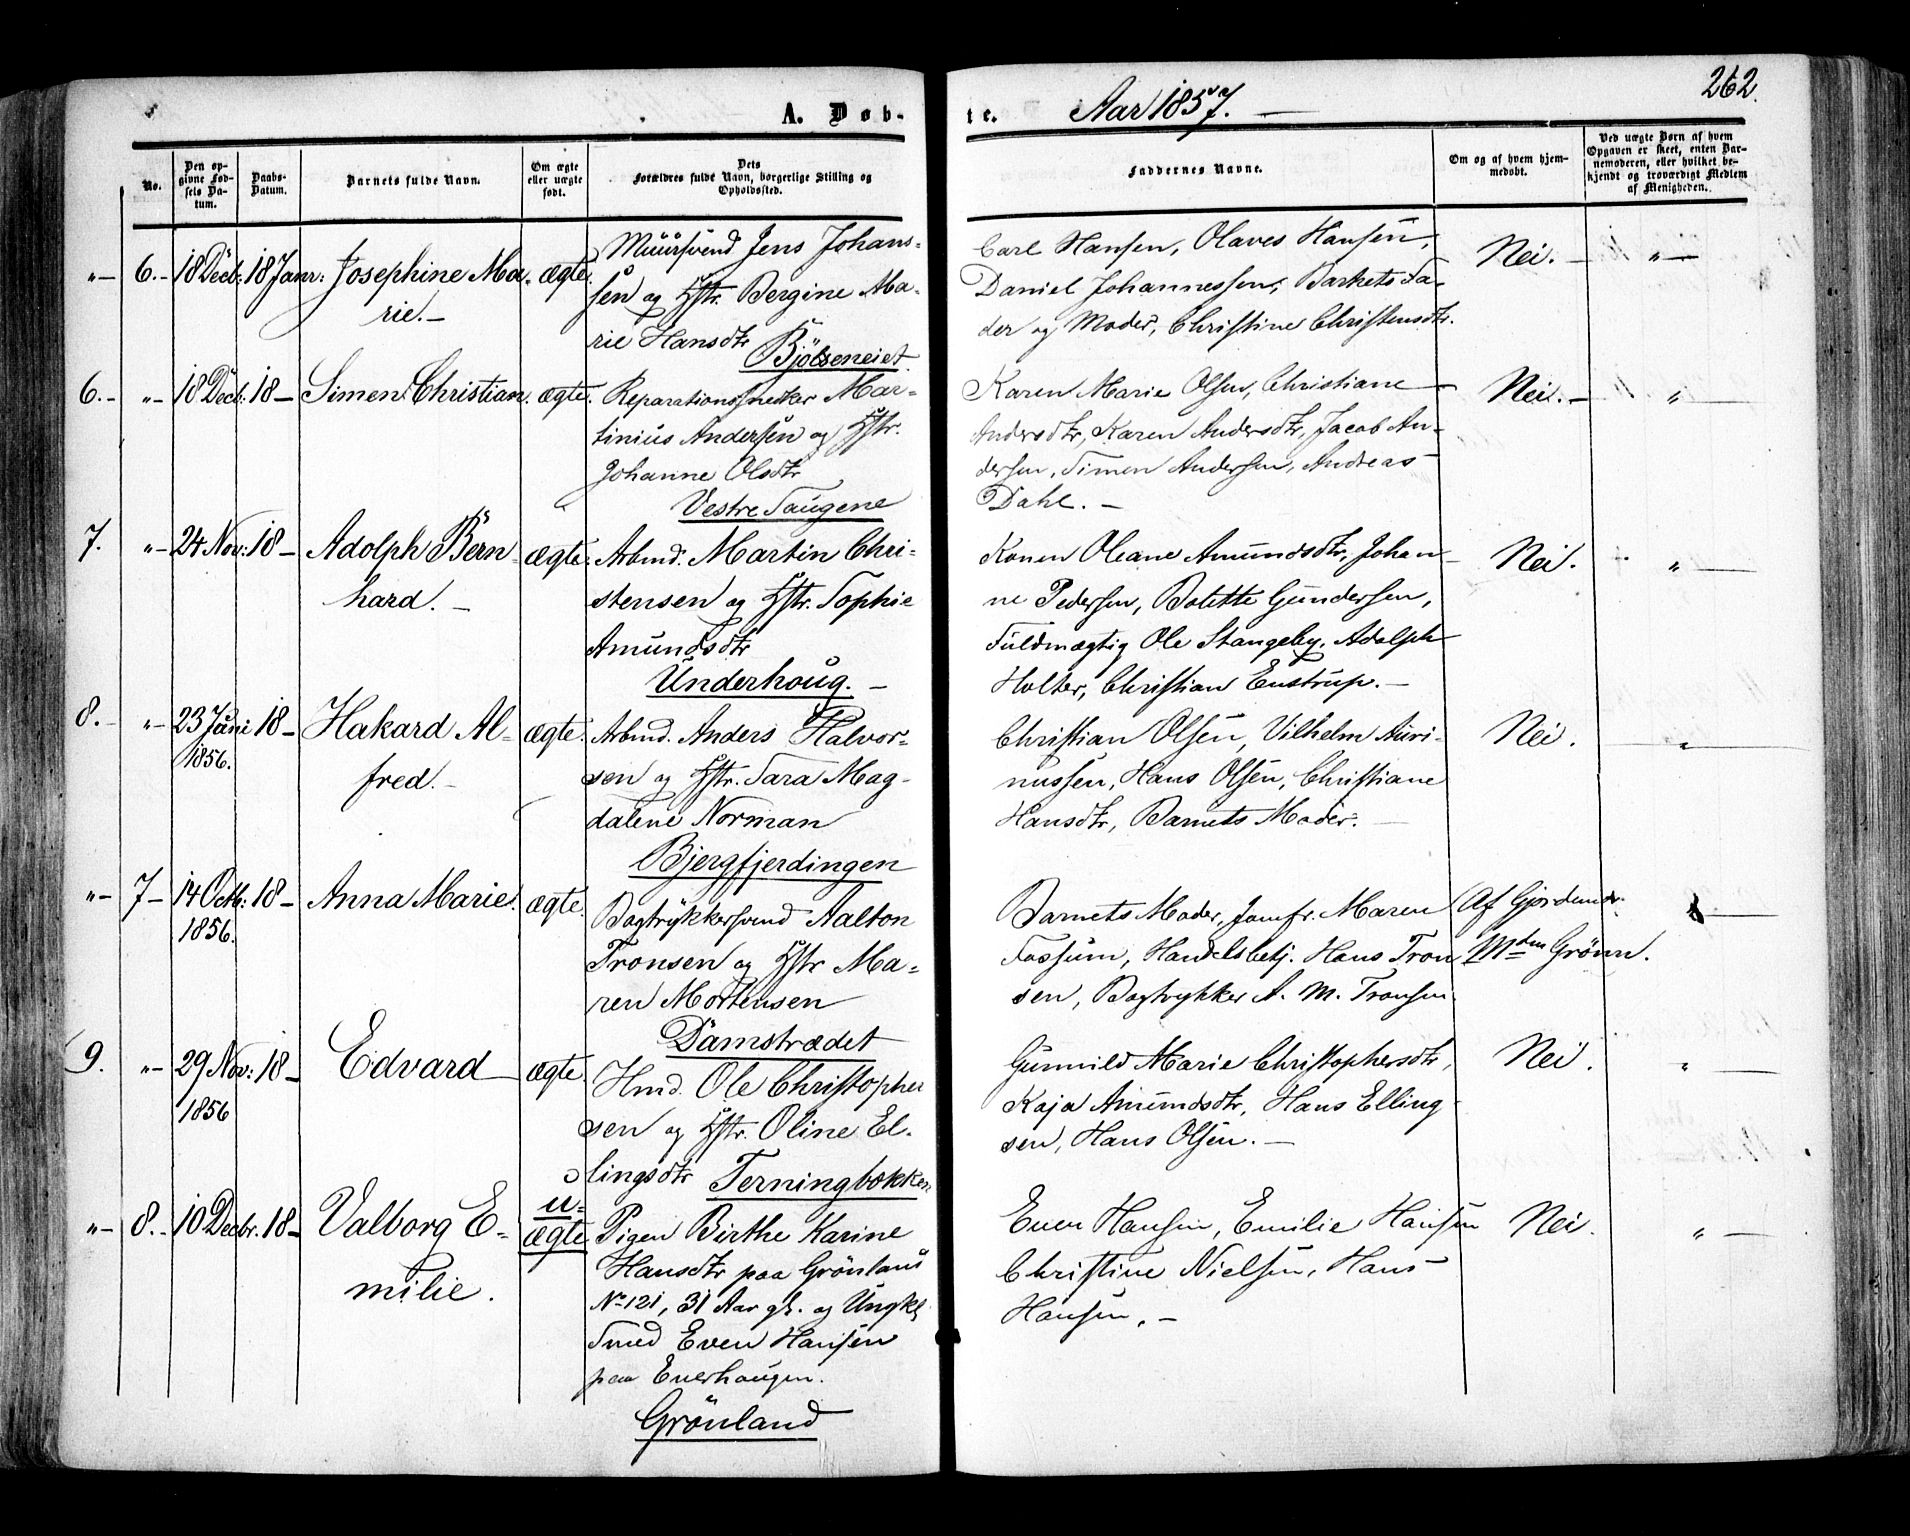 262.
A. Døb- te. Aar 1857. —
No.
Den opgivne Fødsels Datum.
Daabs-Datum.
Barnets fulde Navn.
Om ægte eller uægte født.
Dets Forældres fulde Navn, borgerlige Stilling og Opholdssted.
Faddernes Navne.
Om og af hvem hjemmedøbt.
Ved uægte Børn af hvem Opgaven er skeet, enten Barnemoderen, eller hvilket bekjendt og troværdigt Medlem af Menigheden.
"— 6.- 18 Decb: 18 Janr: Josephine Ma- ægte.
rie.—
Muursvend Jens Johans-
sen og Hstr. Bergine Ma-
rie Hansdtr
Bjölseneiet.
Carl Hansen, Olaves Hansen,
Daniel Johannessen, Barnets Fa-
der og Moder, Christine Christensdtr.
Nei. — "—
6.- "- 18 Decb: 18 — Simen Christian. ægte.
Reparationssnedker Mar-
tinius Andersen og Hstr.
Johanne Olsdtr
Vestre Saugene
Karen Marie Olsen, Christiane
Andersdtr, Karen Andersdtr, Jacob An-
dersen, Simen Andersen, Andreas
Dahl. —
Nei. — "
7. "- 24 Nov: 18 — Adolph Bern- ægte.
hard. —
Arbmd. Martin Chri-
stensen og Hstr. Sophie
Amundsdtr
Underhoug. —
Konen Oleane Amundsdtr, Johan-
ne Pedersen, Bolette Gundersen,
Fuldmægtig Ole Stangeby, Adolph
Holter, Christian Enstrup. —
Nei. "
8.- "- 23 Juni 18 — Hakard Al- ægte.
1856.
fred. —
Arbmd. Anders Halvor-
sen og Hstr. Sara Mag-
dalene Norman
Bjergfjerdingen
Christian Olsen, Vilhelm Auri-
nussen, Hans Olsen, Christiane
Hansdtr, Barnets Moder. —
Nei. "
"— 7 — 14 Octb: 18 — Anna Marie. ægte.
1856.
Bogtrykkersvend Aalton
Tronsen og Hstr Ma-
ren Mortensen
Damstrædet
Barnets Moder, Jomfr. Maren
Fossum, Handelsbetj. Hans Tron-
sen, Bogtrykker A. M. Tronsen
Af Gjordemdr.
Mdm Grönn.
9. "- 29 Nov: 18 — Edvard — ægte.
1856
Hmd. Ole Christopher
sen og Hstr. Oline El-
lingsdtr Terningbokken
Gunnild Marie Christophersdtr,
Kaja Amundsdtr, Hans Elling-
sen, Hans Olsen. —
Nei. "
"— 8.- 10 Decbr. 18 — Valborg E- u-
ægte
milie.
Pigen Birthe Karine
Hansdtr paa Grönland
No 121, 31 Aar gl. og Ungkl.
Smed Even Hansen
paa Enerhaugen.
Grönland
Even Hansen, Emilie Hansen
Christine Nielsen, Hans
Hansen. —
Nei. " —